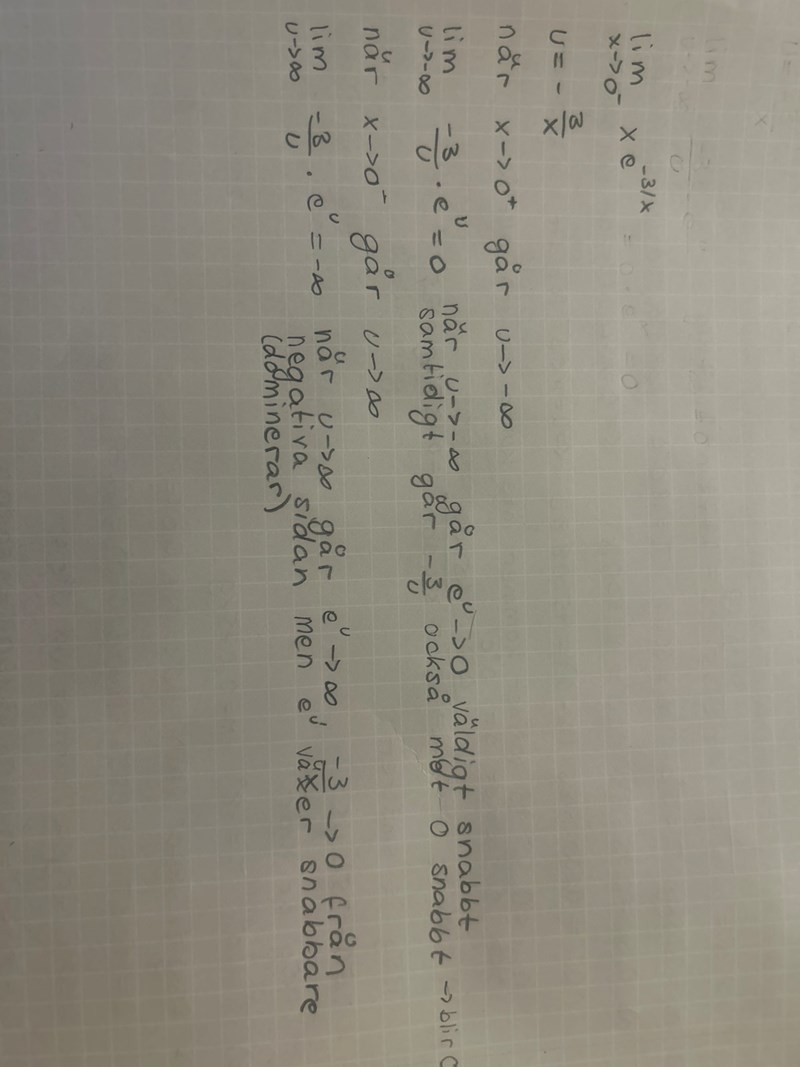 lim x e^{-3/x}
x→0^-
u = -3/x
när x→0^+ går u→-∞
lim -3/u · e^u = 0 när u→-∞ går e^u→0 väldigt snabbt
u→-∞ samtidigt går -3/u också mot 0 snabbt → blir 0
när x→0^- går u→∞
lim -3/u · e^u = -∞ när u→∞ går e^u→∞ -3/u→0 från
u→∞ negativa sidan men e^u växer snabbare
(dominerar)